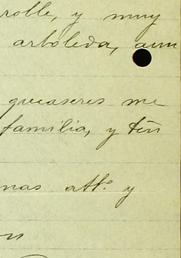 roble, y muy
arboleda, aun
quеhaseres me
familia, y tén
nas att.ª y